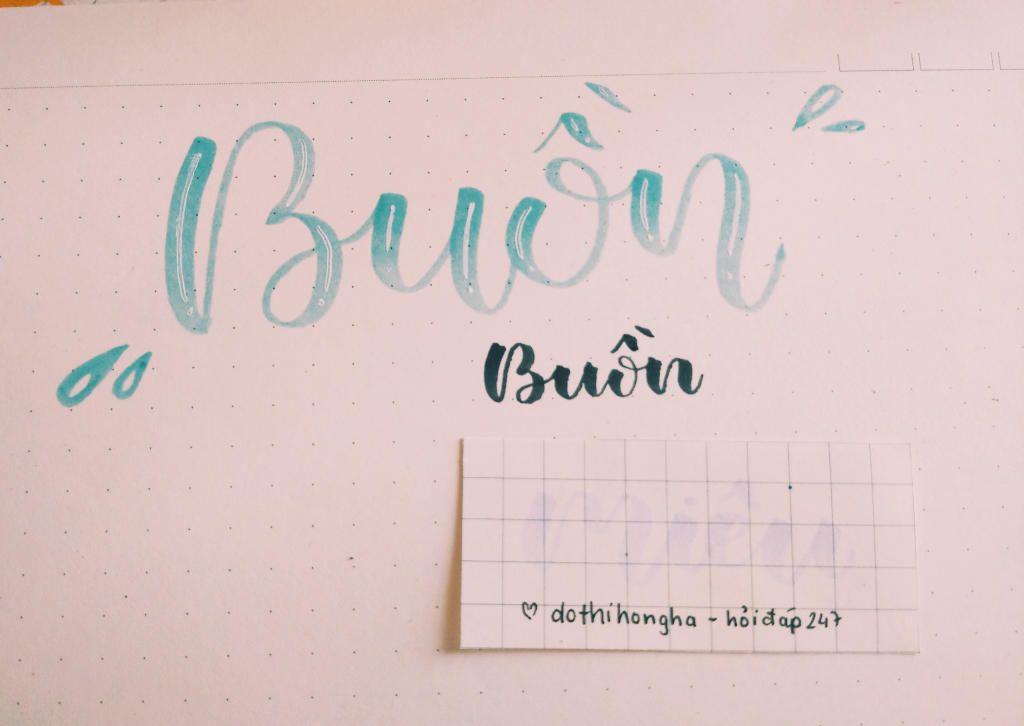 Buồn
Buồn
Miêu
♡ dothihongha - hỏi đáp 247